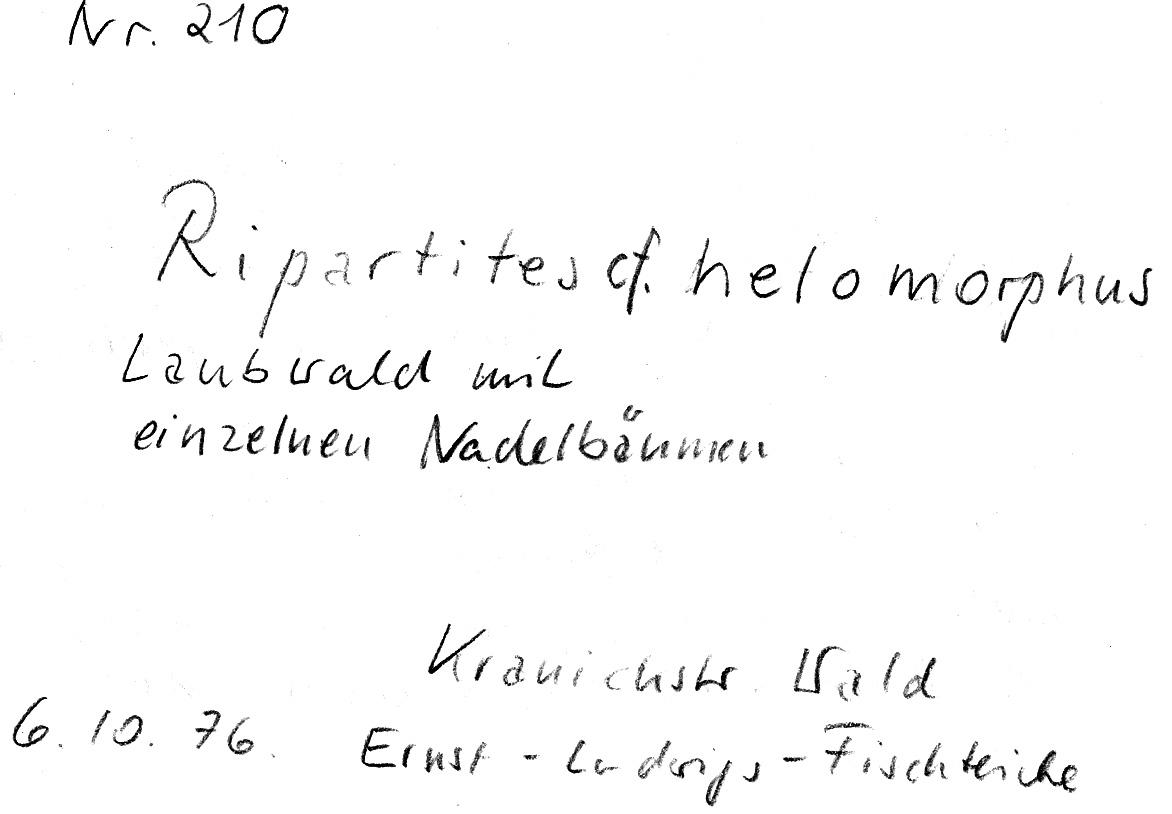 Nr. 210
Ripartites cf. helomorphus
Laubwald mit
einzelnen Nadelbäumen
Kranichstr. Wald
6.10.76. Ernst-Ludwigs-Fischteiche